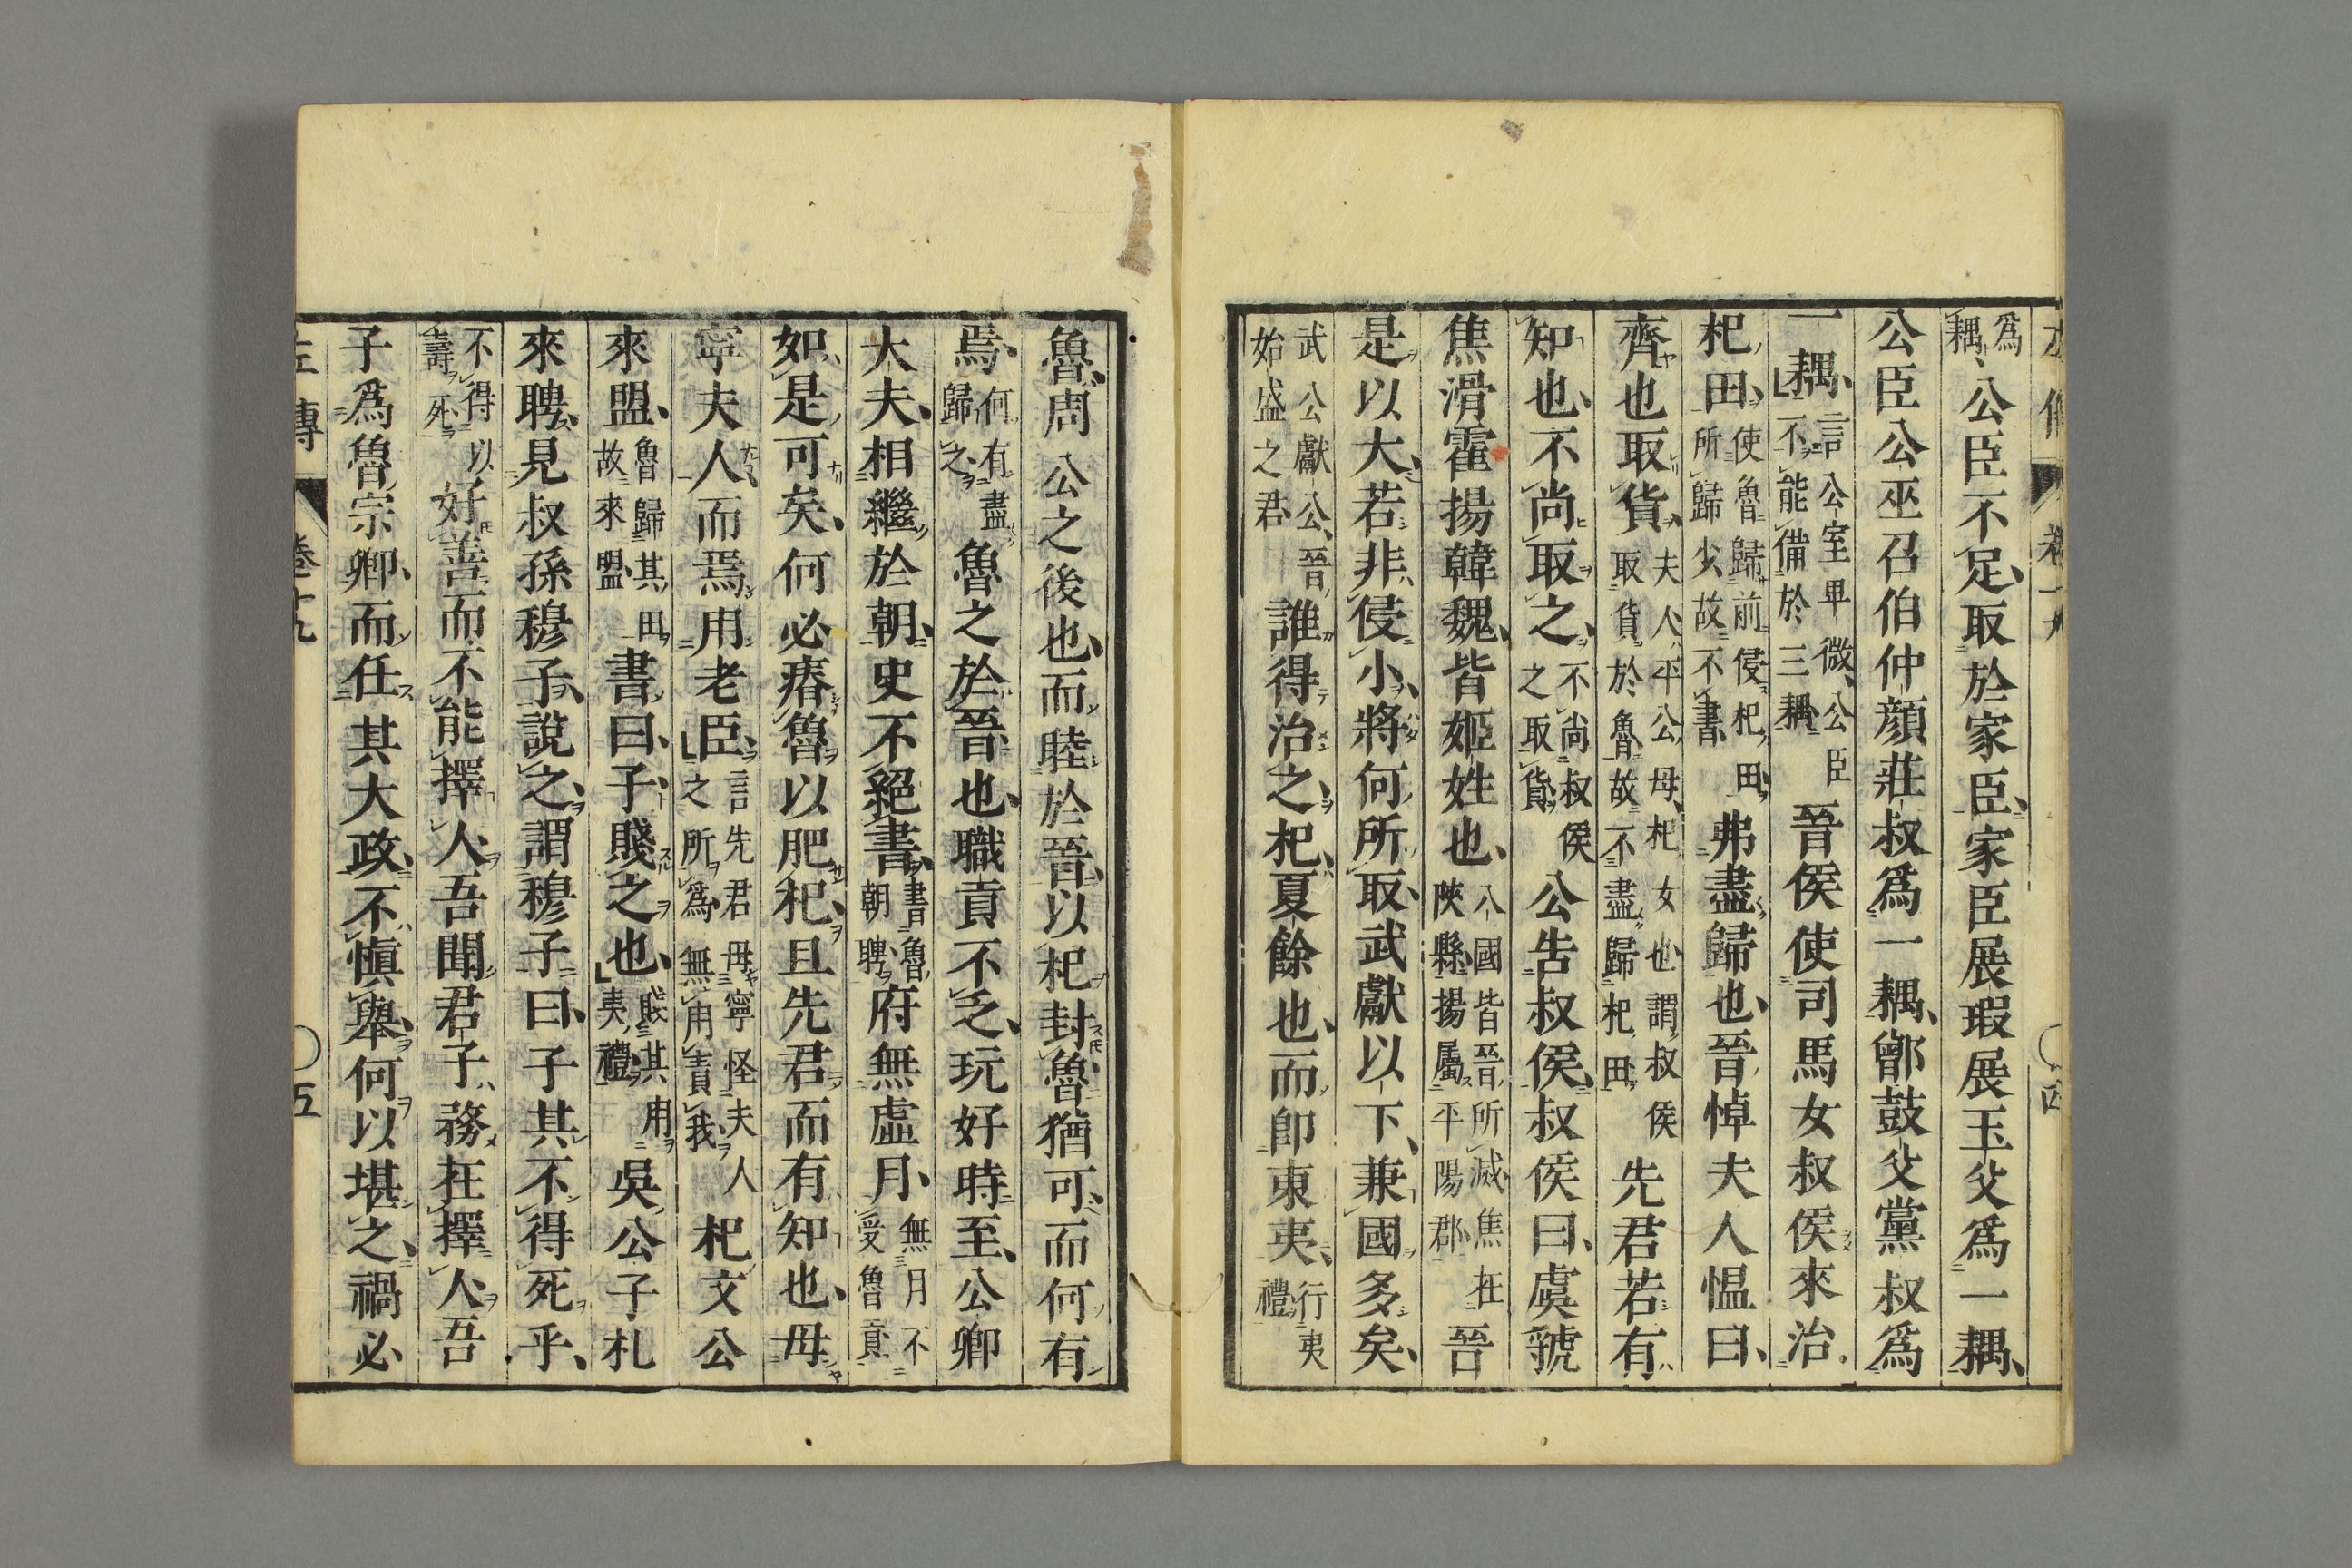 左傳 卷十九 〇四
爲耦、公臣不足、取於家臣、家臣展瑕展玉父爲一耦、
公臣公巫召伯仲顏莊叔爲一耦、鄫鼓父黨叔爲
一耦、言公室卑微、公臣不能備於三耦、晉侯使司馬女叔侯來治
杞田、使魯歸前侵杞田、所歸少、故不書、弗盡歸也、晉悼夫人慍曰、
齊也取貨、夫人、平公母、杞女也、謂叔侯取貨於魯、故不盡歸杞田、先君若有
知也、不尚取之、不尚叔侯之取貨、公告叔侯、叔侯曰、虞虢
焦滑霍揚韓魏、皆姬姓也、八國皆晉所滅、焦在陝縣、揚屬平陽郡、晉
是以大、若非侵小、將何所取、武獻以下、兼國多矣、
武公獻公、晉始盛之君、誰得治之、杞、夏餘也、而卽東夷、行夷禮、
魯、周公之後也、而睦於晉、以杞封魯猶可、而何有
焉、何有盡歸之、魯之於晉也、職貢不乏、玩好時至、公卿
大夫、相繼於朝、史不絕書、書魯朝聘、府無虛月、無月不受魯貢、
如是可矣、何必瘠魯以肥杞、且先君而有知也、毋
寧夫人而焉用老臣、言先君毋寧怪夫人之所爲、無用責我、杞文公
來盟、魯歸其田、故來盟、書曰、子、賤之也、賤其用夷禮、吳公子札
來聘、見叔孫穆子、說之、謂穆子曰、子其不得死乎、
不得以壽死、好善而不能擇人、吾聞君子務在擇人、吾
子爲魯宗卿、而任其大政、不愼舉、何以堪之、禍必
左傳 卷十九 〇五